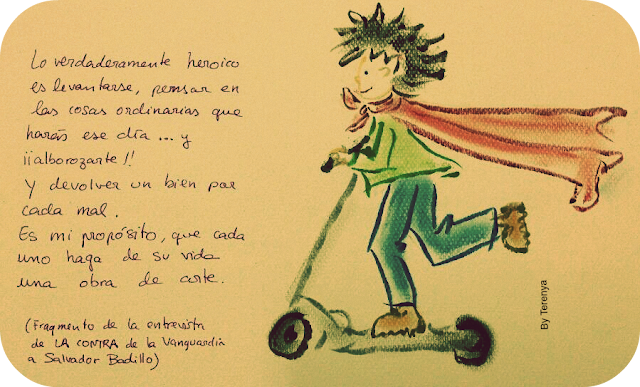 Lo verdaderamente heroico
es levantarse, pensar en
las cosas ordinarias que
harás ese día ... y
¡¡alborozarte!!
Y devolver un bien por
cada mal.
Es mi propósito, que cada
uno haga de su vida
una obra de arte.
(Fragmento de la entrevista
de LA CONTRA de la Vanguardia
a Salvador Badillo)
By Terenya